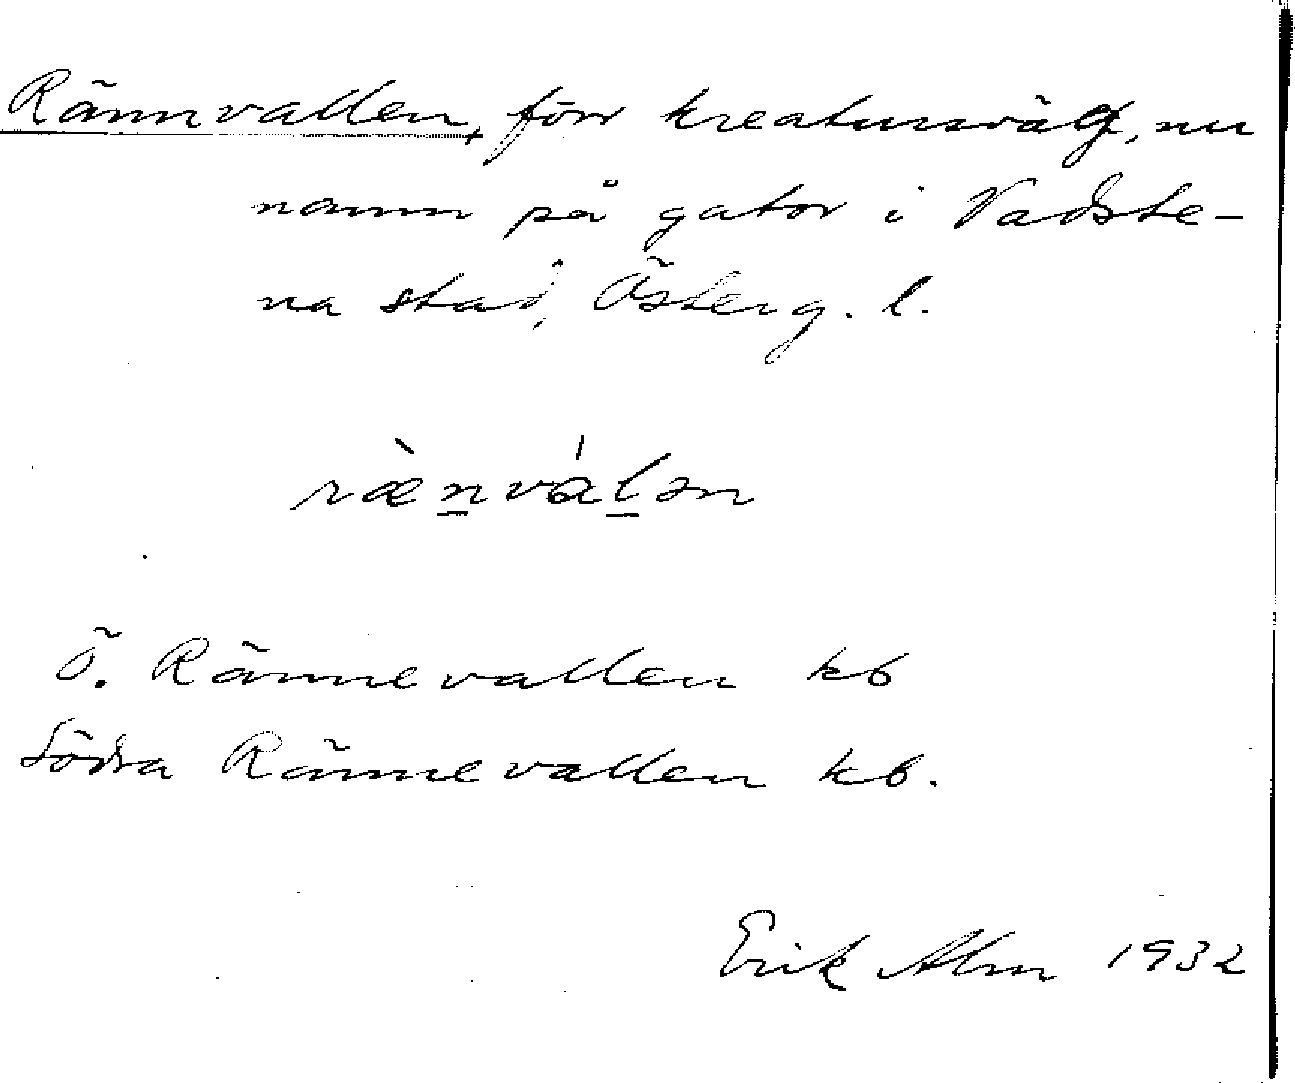 Rännvallen, förr kreatursväg, nu
namn på gator i Vadste-
na stad, Österg. l.
rænvalən
Ö. Rännevallen kb
Södra Rännevallen kb.
Erik Alm 1932